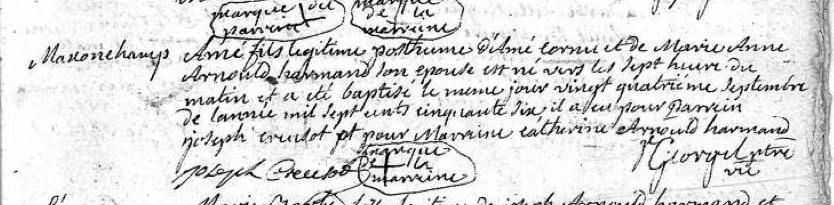 marque du marque
parrein de la
marreine
Maxonchamp Amé fils legitime posthume d'Amé Cornu et de Marie Anne
Arnould harmand son epouse est né vers les sept heure du
matin et a eté baptisé le meme jour vingt quatriéme septembre
de lannée mil sept cents cinquante six, il a eu pour parrein
joseph creusot et pour Marreine catherine Arnould harmand
joseph Creusot marque
de la
marreine
Giorgel ptre
vic
Marie legitime de joseph Arnould harmand et